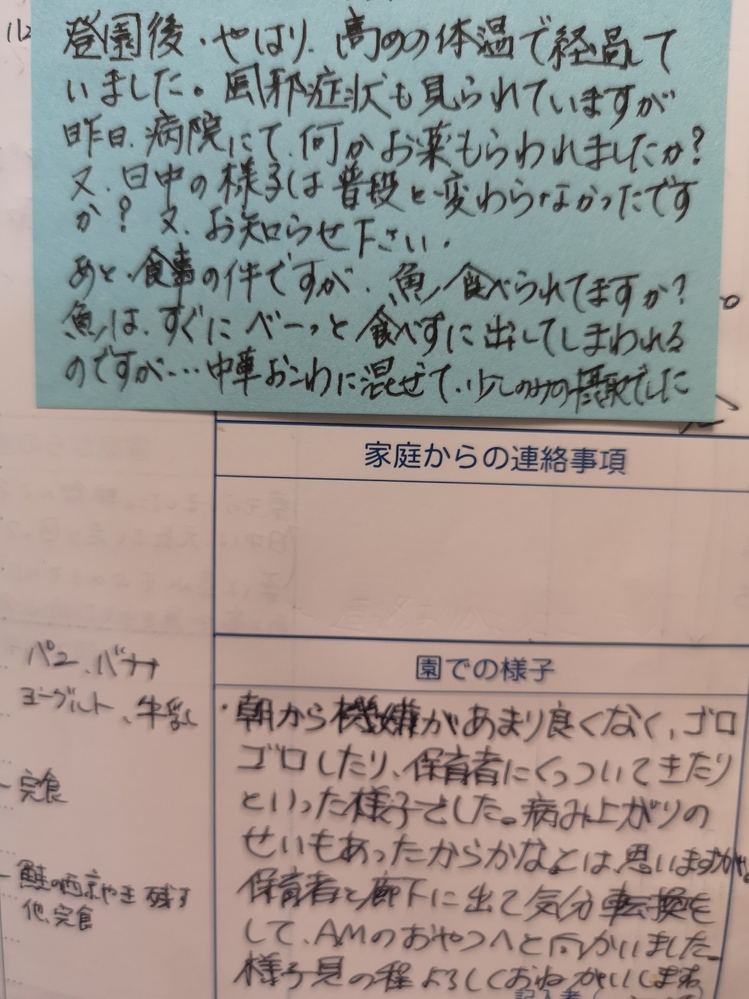 112
登園後、やはり、高めの体温で経過して
いました。風邪症状も見られていますが
昨日、病院にて、何かお薬もらわれましたか?
又、日中の様子は普段と変わらなかったです
か? 又、お知らせ下さい。
あと、食事の件ですが、魚、食べられてますか?
魚は、すぐにべーっと食べずに出してしまわれる
のですが…中華おこわに混ぜて、少しのみの摂取でした
家庭からの連絡事項
園での様子
パン、バナナ
ヨーグルト、牛乳
完食
鮭の西京やき残す
他、完食
・朝から機嫌があまり良くなく、ゴロ
ゴロしたり、保育者にくっついてきたり
といった様子でした。病み上がりの
せいもあったからかなとは思いますが。
保育者と廊下に出て気分転換を
して、AMのおやつへと向かいました。
様子見の程よろしくおねがいします。
記入者